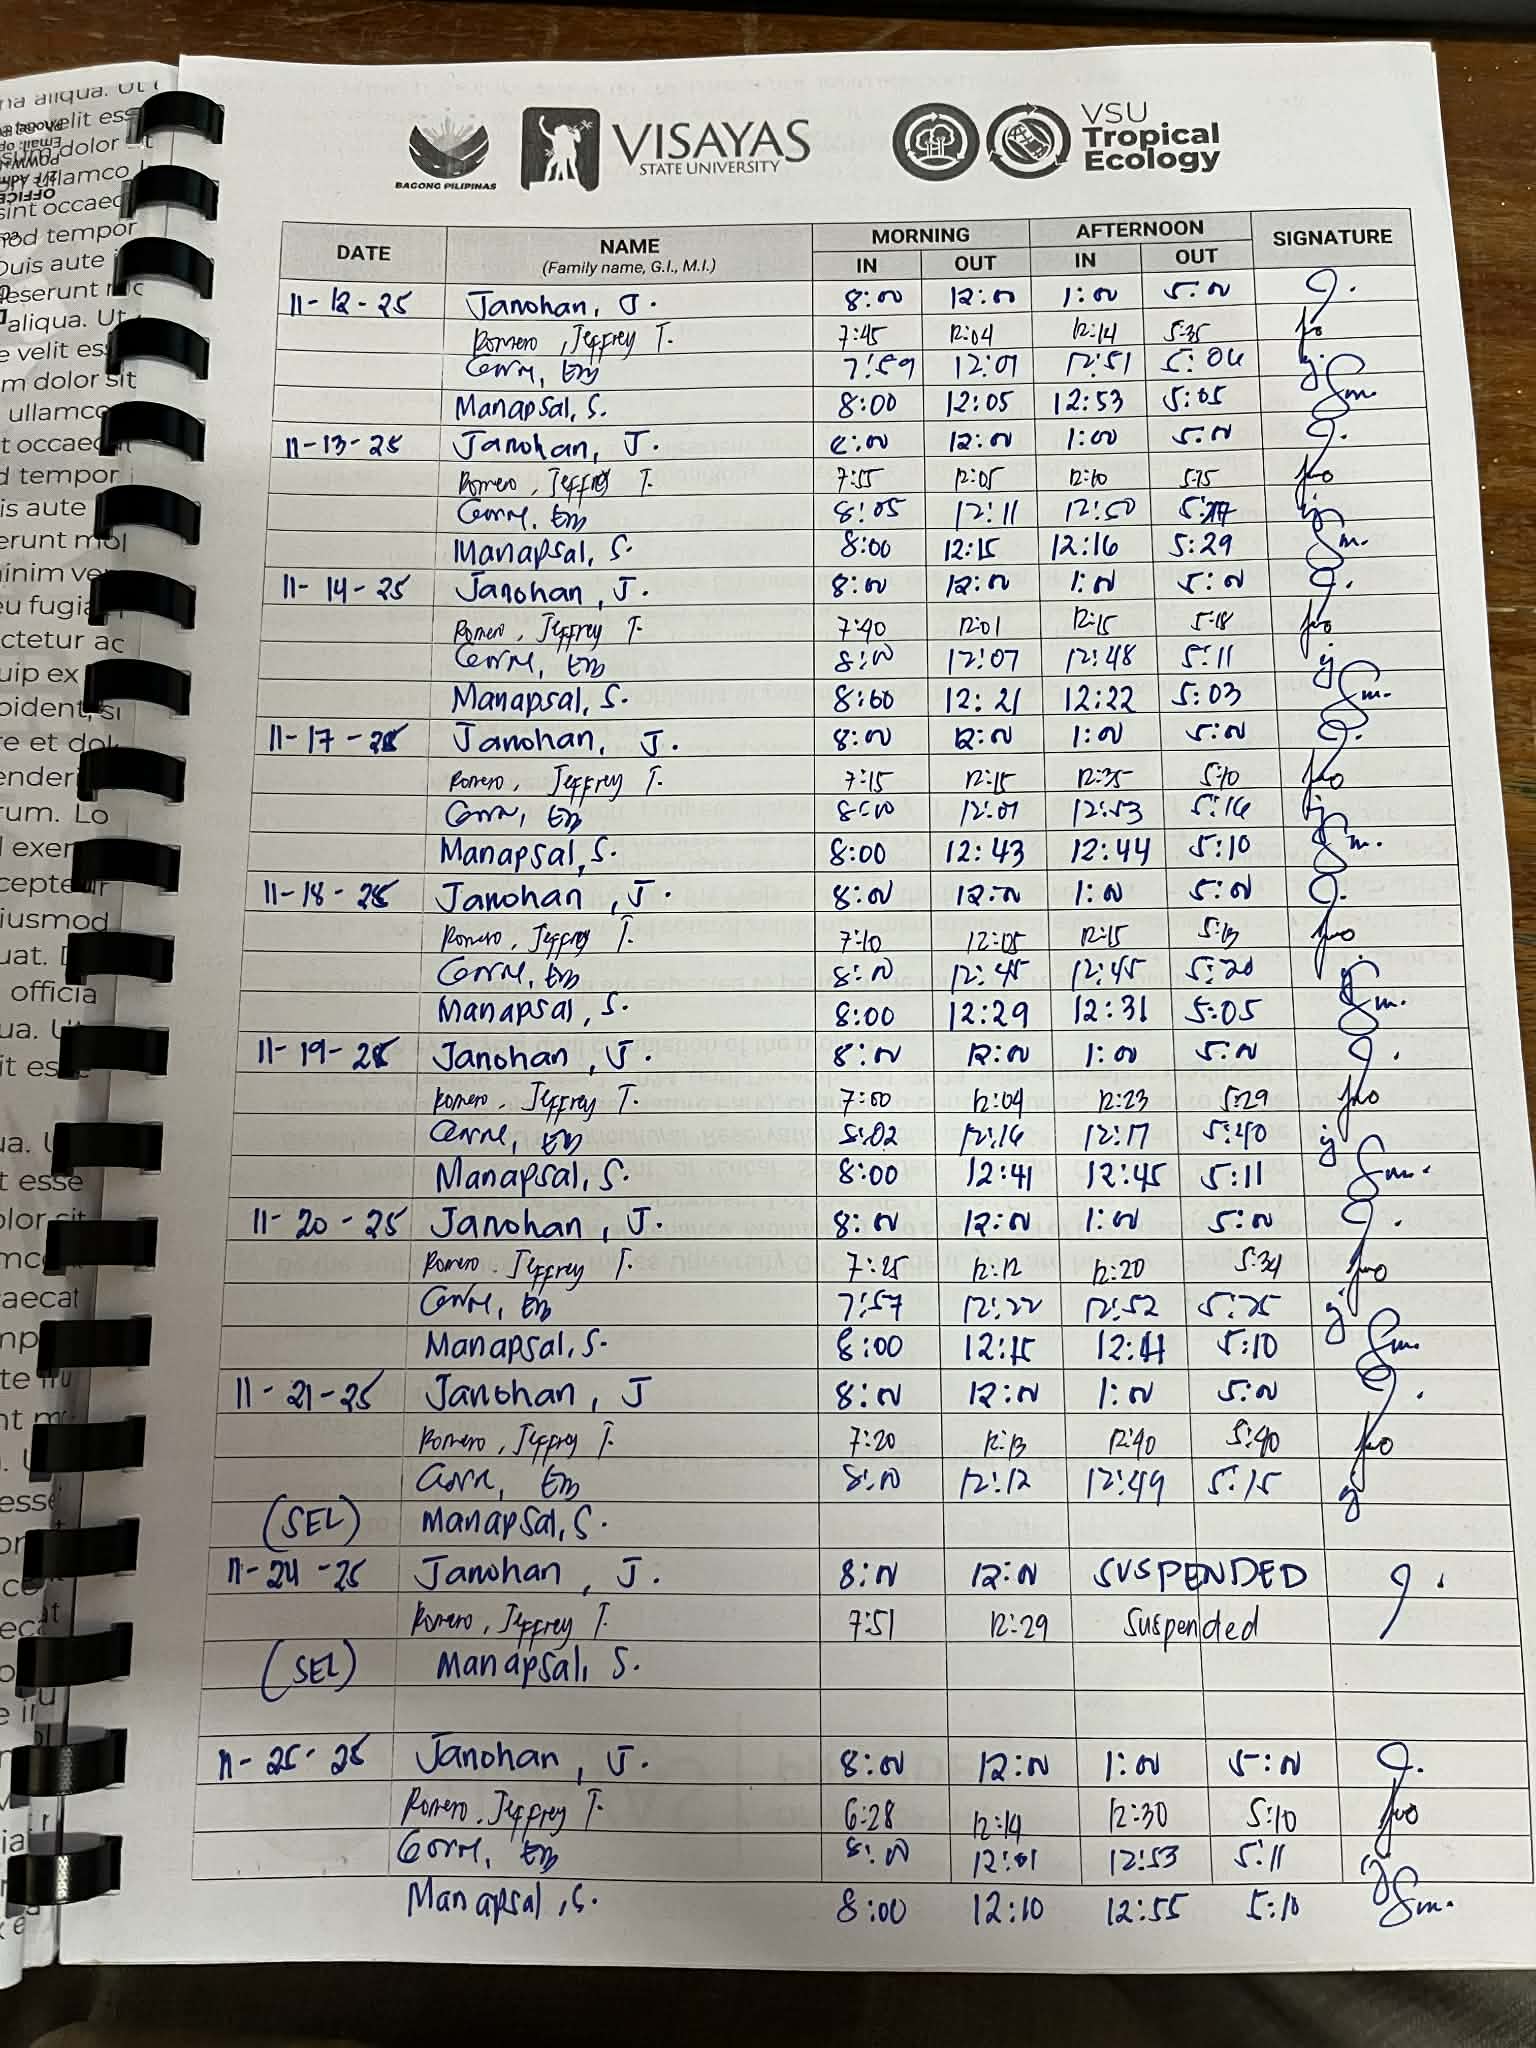 BAGONG PILIPINAS
VISAYAS
STATE UNIVERSITY
VSU
Tropical
Ecology
DATE NAME MORNING AFTERNOON SIGNATURE
(Family name, G.I., M.I.) IN OUT IN OUT
11-12-25 Janohan, J. 8:00 12:00 1:00 5:00
Romero, Jeffrey T. 7:45 12:04 12:14 5:35
7:59 12:01 12:51 5:06
Manapsal, S. 8:00 12:05 12:53 5:05
11-13-25 Janohan, J. 8:00 12:00 1:00 5:00
Romero, Jeffrey T. 7:55 12:05 12:10 5:15
8:05 12:11 12:50
Manapsal, S. 8:00 12:15 12:16 5:29
11-14-25 Janohan, J. 8:00 12:00 1:00 5:00
Romero, Jeffrey T. 7:40 12:01 12:15 5:18
8:00 12:07 12:48 5:11
Manapsal, S. 8:00 12:21 12:22 5:03
11-17-25 Janohan, J. 8:00 12:00 1:00 5:00
Romero, Jeffrey T. 7:15 12:15 12:35 5:10
8:00 12:01 12:53 5:16
Manapsal, S. 8:00 12:43 12:44 5:10
11-18-25 Janohan, J. 8:00 12:00 1:00 5:00
Romero, Jeffrey T. 7:10 12:05 12:15 5:13
8:00 12:45 12:45 5:20
Manapsal, S. 8:00 12:29 12:31 5:05
11-19-25 Janohan, J. 8:00 12:00 1:00 5:00
Romero, Jeffrey T. 7:00 12:04 12:23 5:29
8:02 12:16 12:17 5:40
Manapsal, S. 8:00 12:41 12:45 5:11
11-20-25 Janohan, J. 8:00 12:00 1:00 5:00
Romero, Jeffrey T. 7:25 12:12 12:20 5:34
7:57 12:22 12:52 5:25
Manapsal, S. 8:00 12:15 12:41 5:10
11-21-25 Janohan, J 8:00 12:00 1:00 5:00
Romero, Jeffrey T. 7:20 12:13 12:40 5:40
8:00 12:12 12:49 5:15
(SEL) Manapsal, S.
11-24-25 Janohan, J. 8:00 12:00 SUSPENDED
Romero, Jeffrey T. 7:51 12:29 Suspended
(SEL) Manapsal, S.
11-25-25 Janohan, J. 8:00 12:00 1:00 5:00
Romero, Jeffrey T. 6:28 12:14 12:30 5:10
8:00 12:01 12:53 5:11
Manapsal, S. 8:00 12:10 12:55 5:10